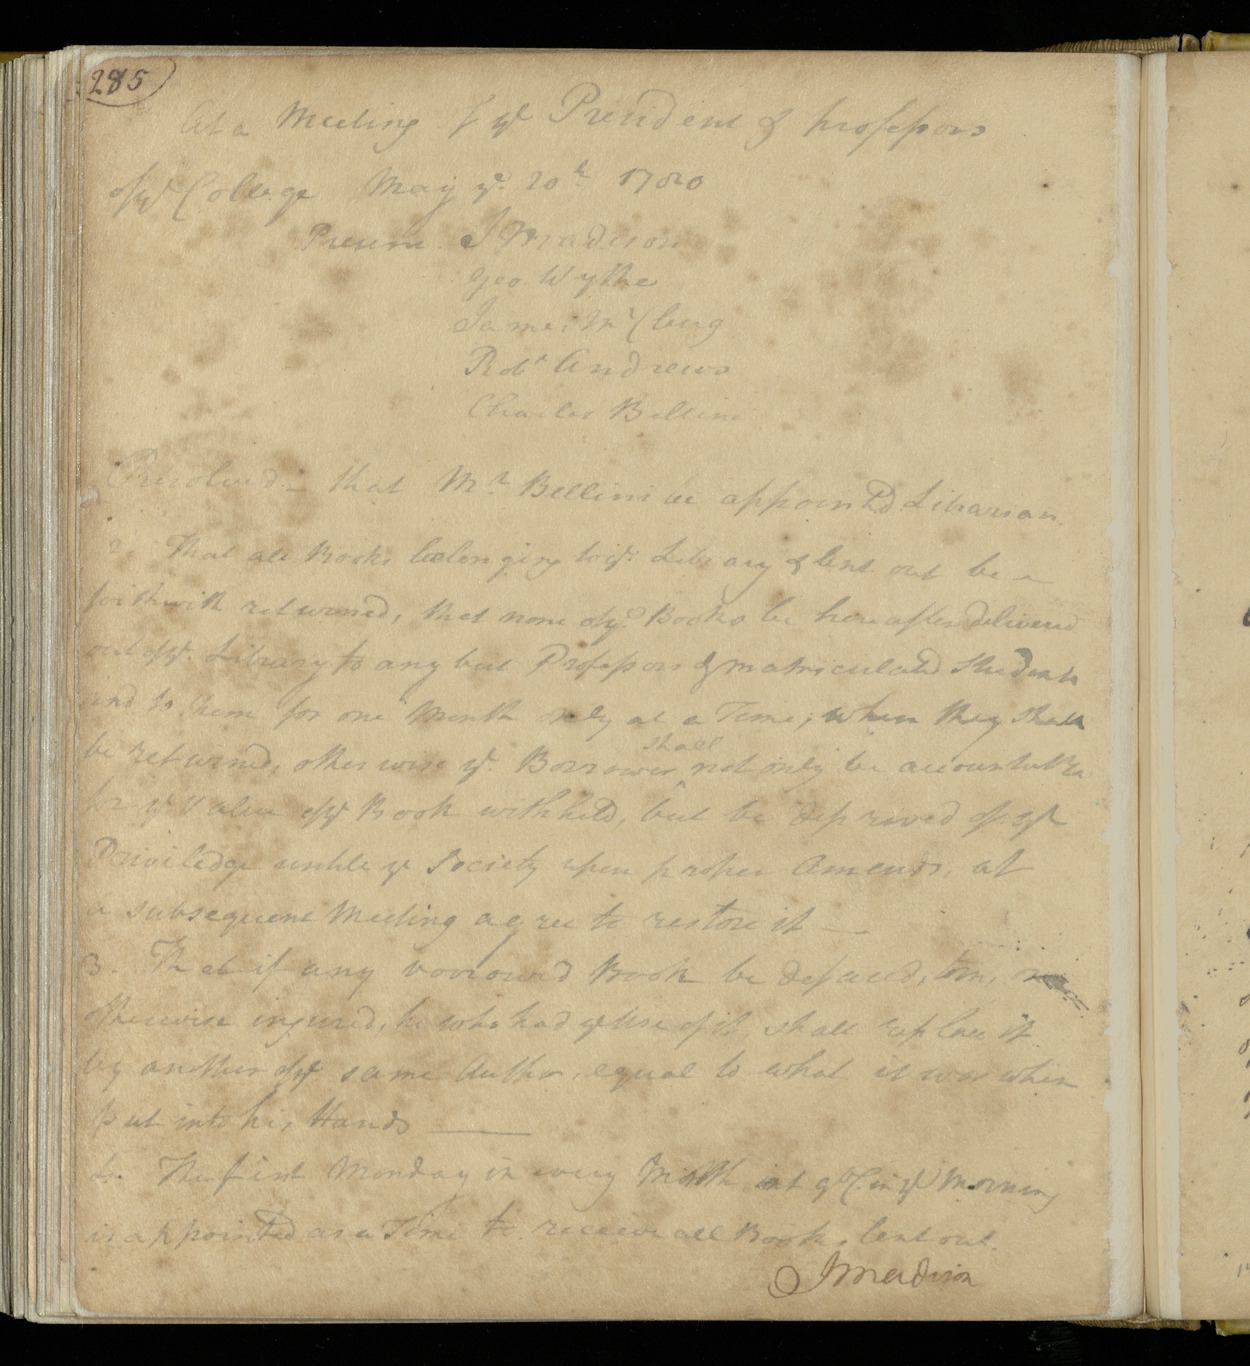 285
At a Meeting of ye President & professors
of ye College May ye. 20th 1780
Present J Madison
Geo. Wythe
James McClurg
Robt Andrews
Charles Bellini
Resolved - that Mr. Bellini be appointed Librarian.
2. That all Books belonging to ye. Library & lent out be
forthwith returned, that none of ye. Books be hereafter delivered
out of ye. Library to any but Professors & matriculated Students
and to them for one Month only at a Time; when they shall
be returned, otherwise ye. Borrower shall not only be accountable
for ye Value of ye Book withheld, but be deprived of ye
Priviledge untile ye Society upon proper Amends, at
a subsequent Meeting agree to restore it —
3. That if any borrowed Book be defaced, torn, or
otherwise injured, he who had ye Use of it, shall replace it
by another of ye same Author, equal to what it was when
put into his Hands ———
4. The first Monday in every Month at 9 oC in ye Morning
is appointed as a Time to receive all Books lent out.
J Madison